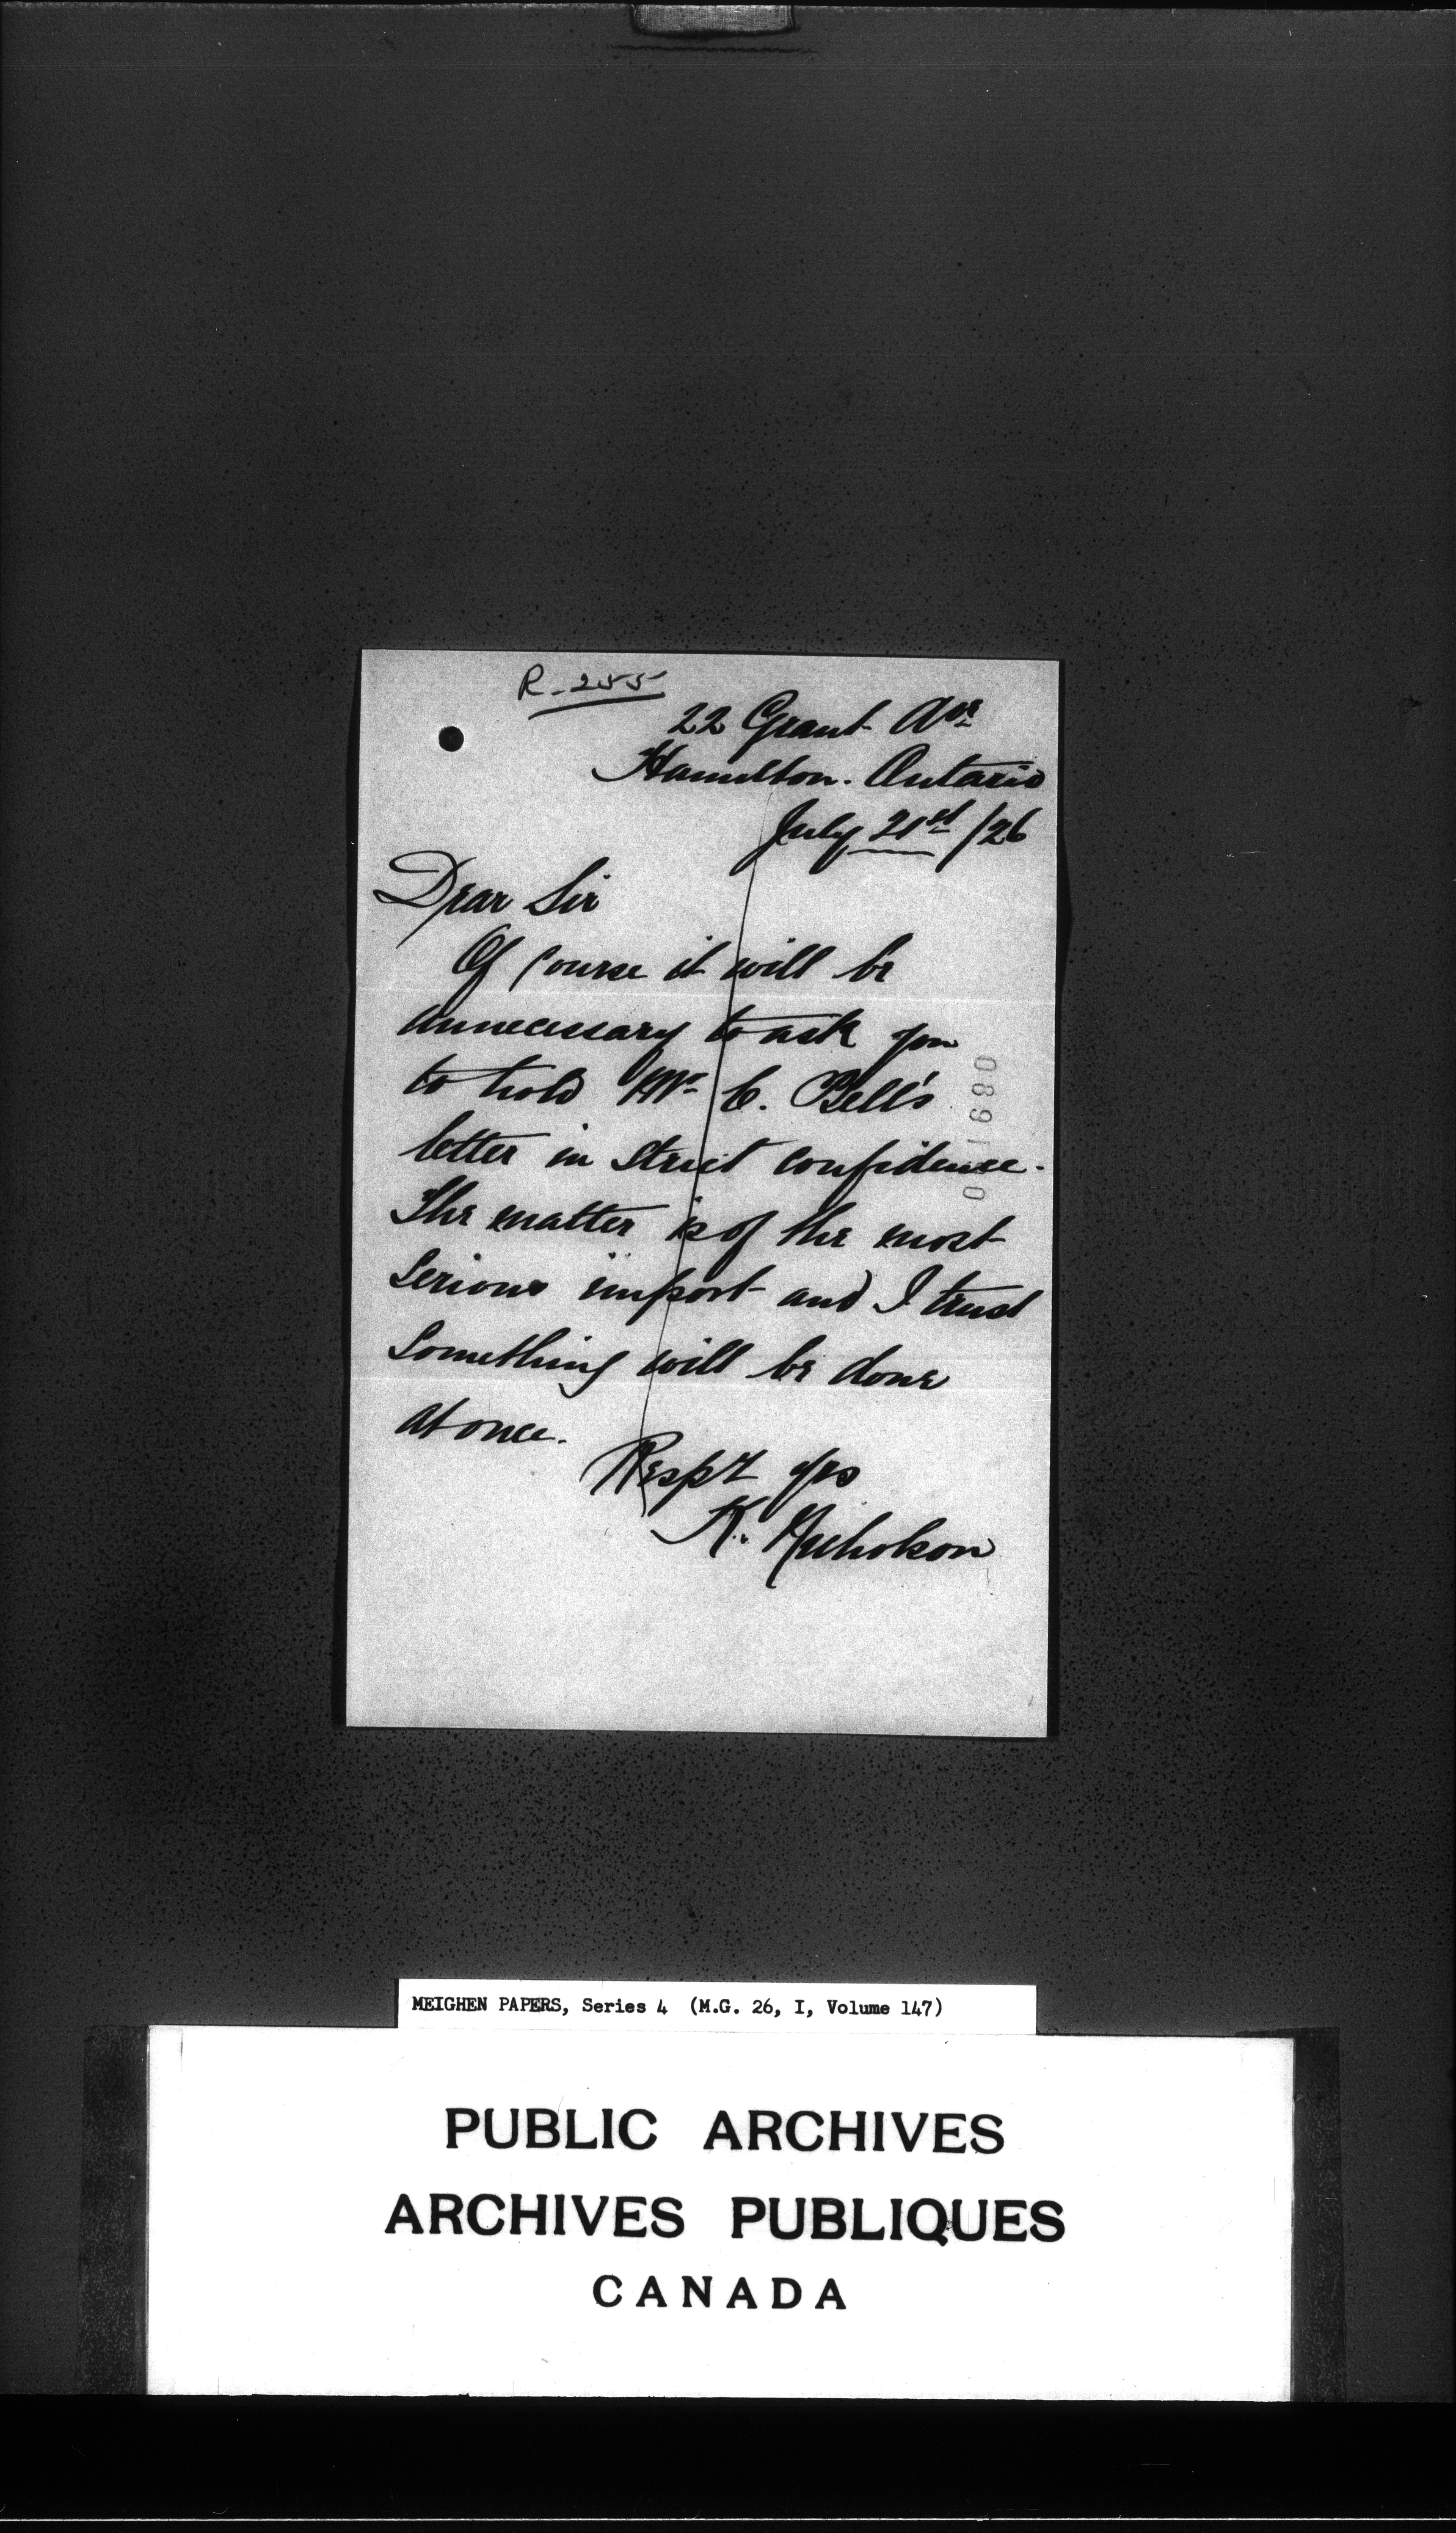 R-255
22 Grant Ave
Hamilton. Ontario
July 21st /26
Dear Sir
Of Course it will be
unnecessary to ask you
to hold Mr C. Bell's
letter in strict confidence.
The matter is of the most
serious import and I trust
something will be done
at once.
Resp't yrs
K. Nicholson
MEIGHEN PAPERS, Series 4 (M.G. 26, I, Volume 147)
PUBLIC ARCHIVES
ARCHIVES PUBLIQUES
CANADA